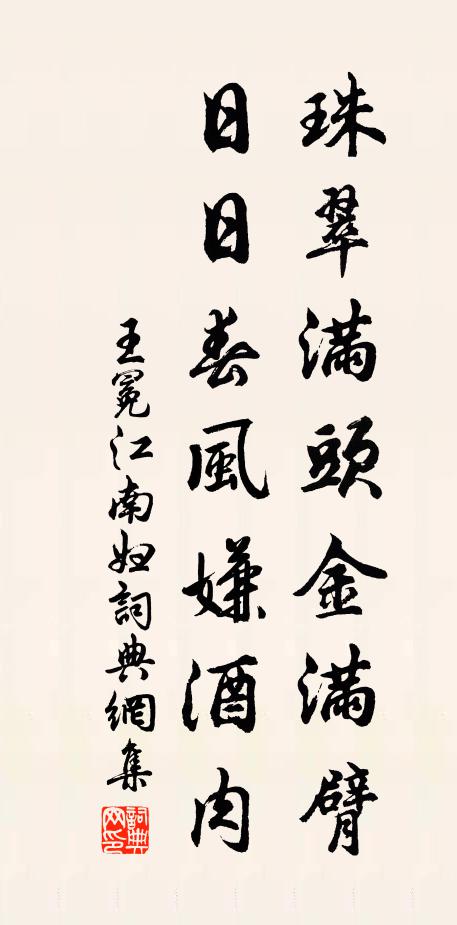 珠翠滿頭金滿臂
日日春風嫌酒肉
王冕江南妇詞典網集
詞典网印